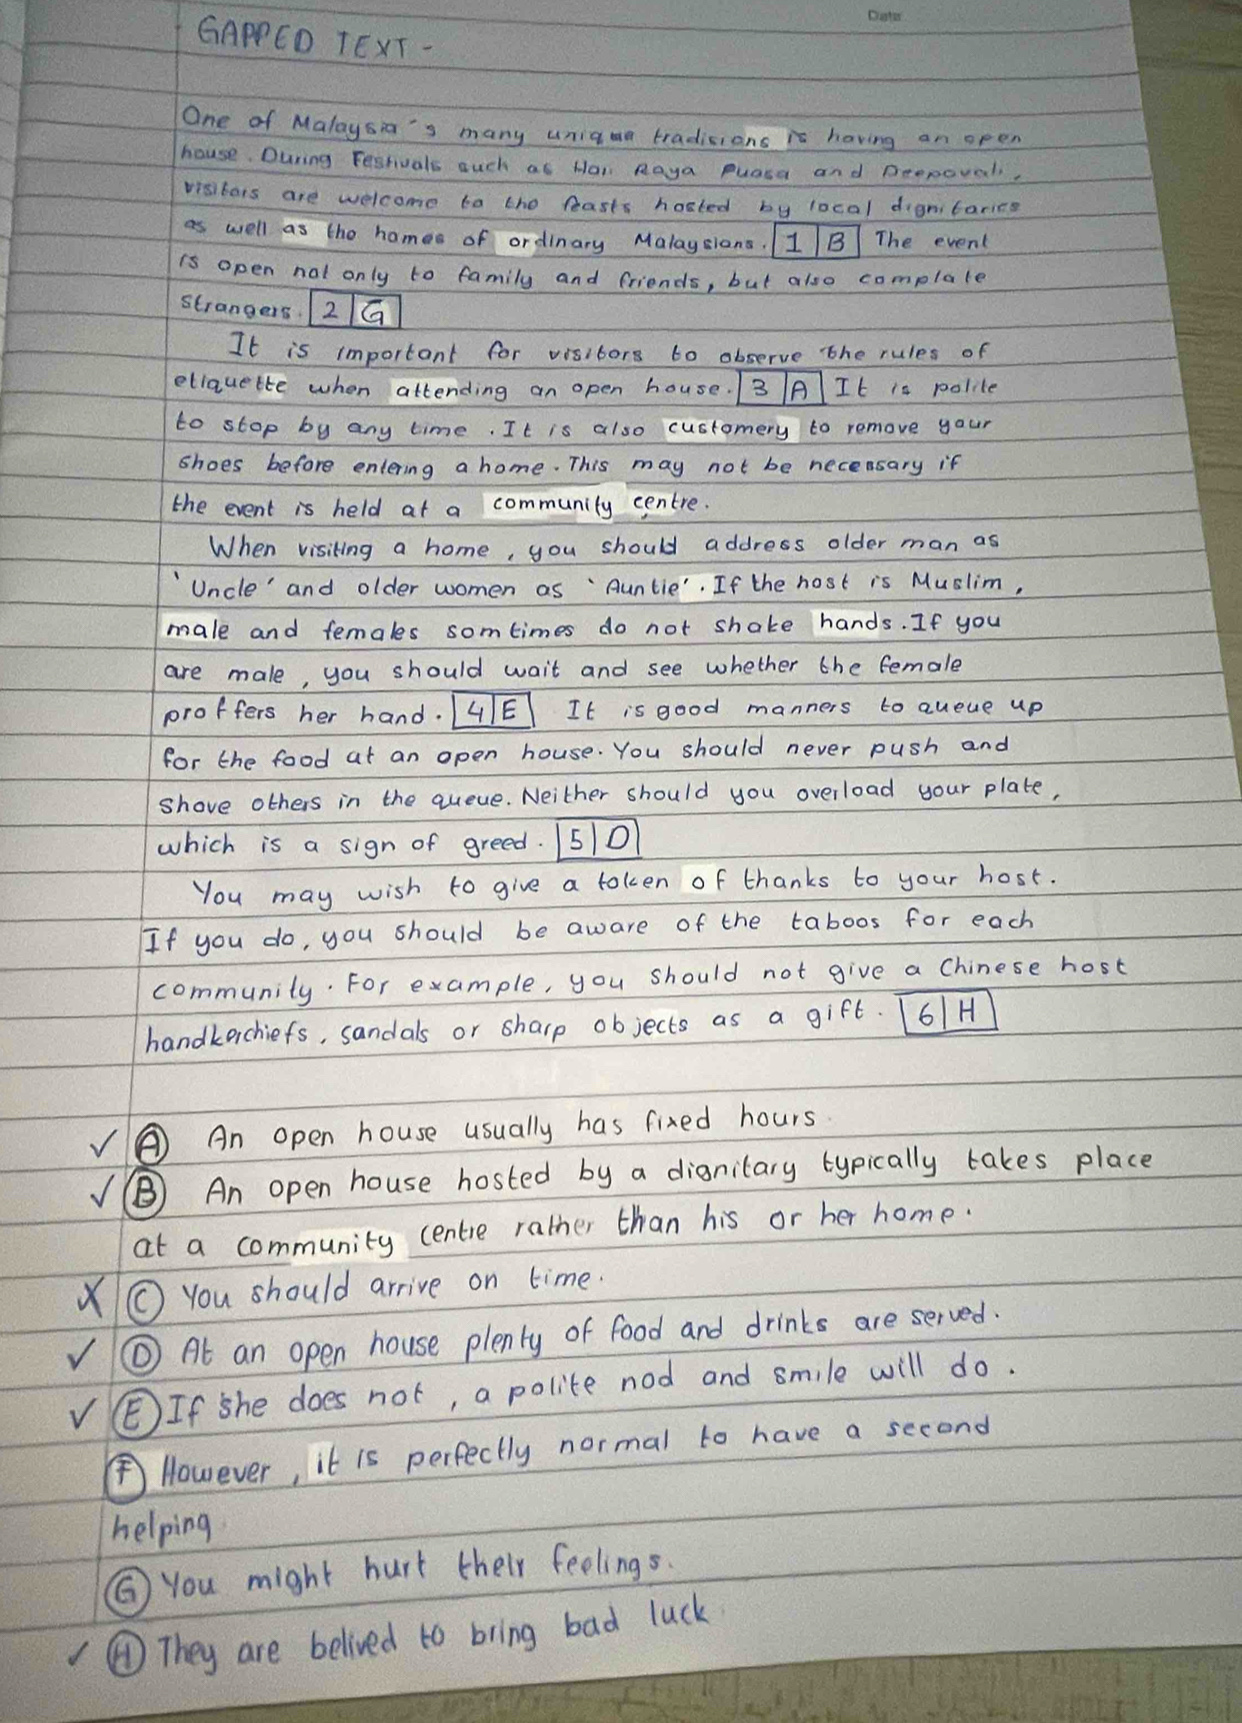 Date
GAPPED TEXT -
One of Malaysia's many unique tradisions is having an open
house. During Festivals such as Hari Raya Puasa and Deepavali,
visitors are welcome to the feasts hosted by local dignitaries
as well as the homes of ordinary Malaysians. 1 B The event
is open not only to family and friends, but also complate
strangers. 2 G
It is important for visitors to observe the rules of
etiquette when attending an open house. 3 A It is polite
to stop by any time. It is also customery to remove your
shoes before entering a home. This may not be necessary if
the event is held at a community centre.
When visiting a home, you should address older man as
'Uncle' and older women as 'Auntie'. If the host is Muslim,
male and females somtimes do not shake hands. If you
are male, you should wait and see whether the female
proffers her hand. 4 E It is good manners to queue up
for the food at an open house. You should never push and
shove others in the queue. Neither should you overload your plate,
which is a sign of greed. 5 D
You may wish to give a token of thanks to your host.
If you do, you should be aware of the taboos for each
community. For example, you should not give a Chinese host
handkerchiefs, sandals or sharp objects as a gift. 6 H
✓ A An open house usually has fixed hours.
✓ B An open house hosted by a dignitary typically takes place
at a community centre rather than his or her home.
X C You should arrive on time.
✓ D At an open house plenty of food and drinks are served.
✓ E If she does not, a polite nod and smile will do.
F However, it is perfectly normal to have a second
helping.
G You might hurt their feelings.
✓ H They are belived to bring bad luck.